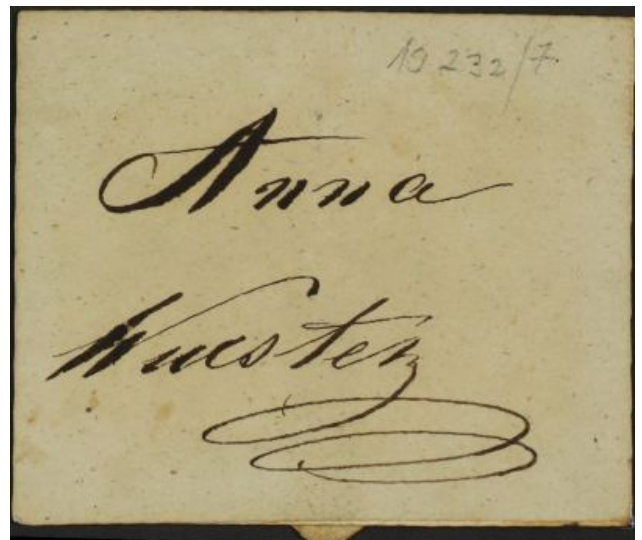 10 232/7
Anna
Wuesten